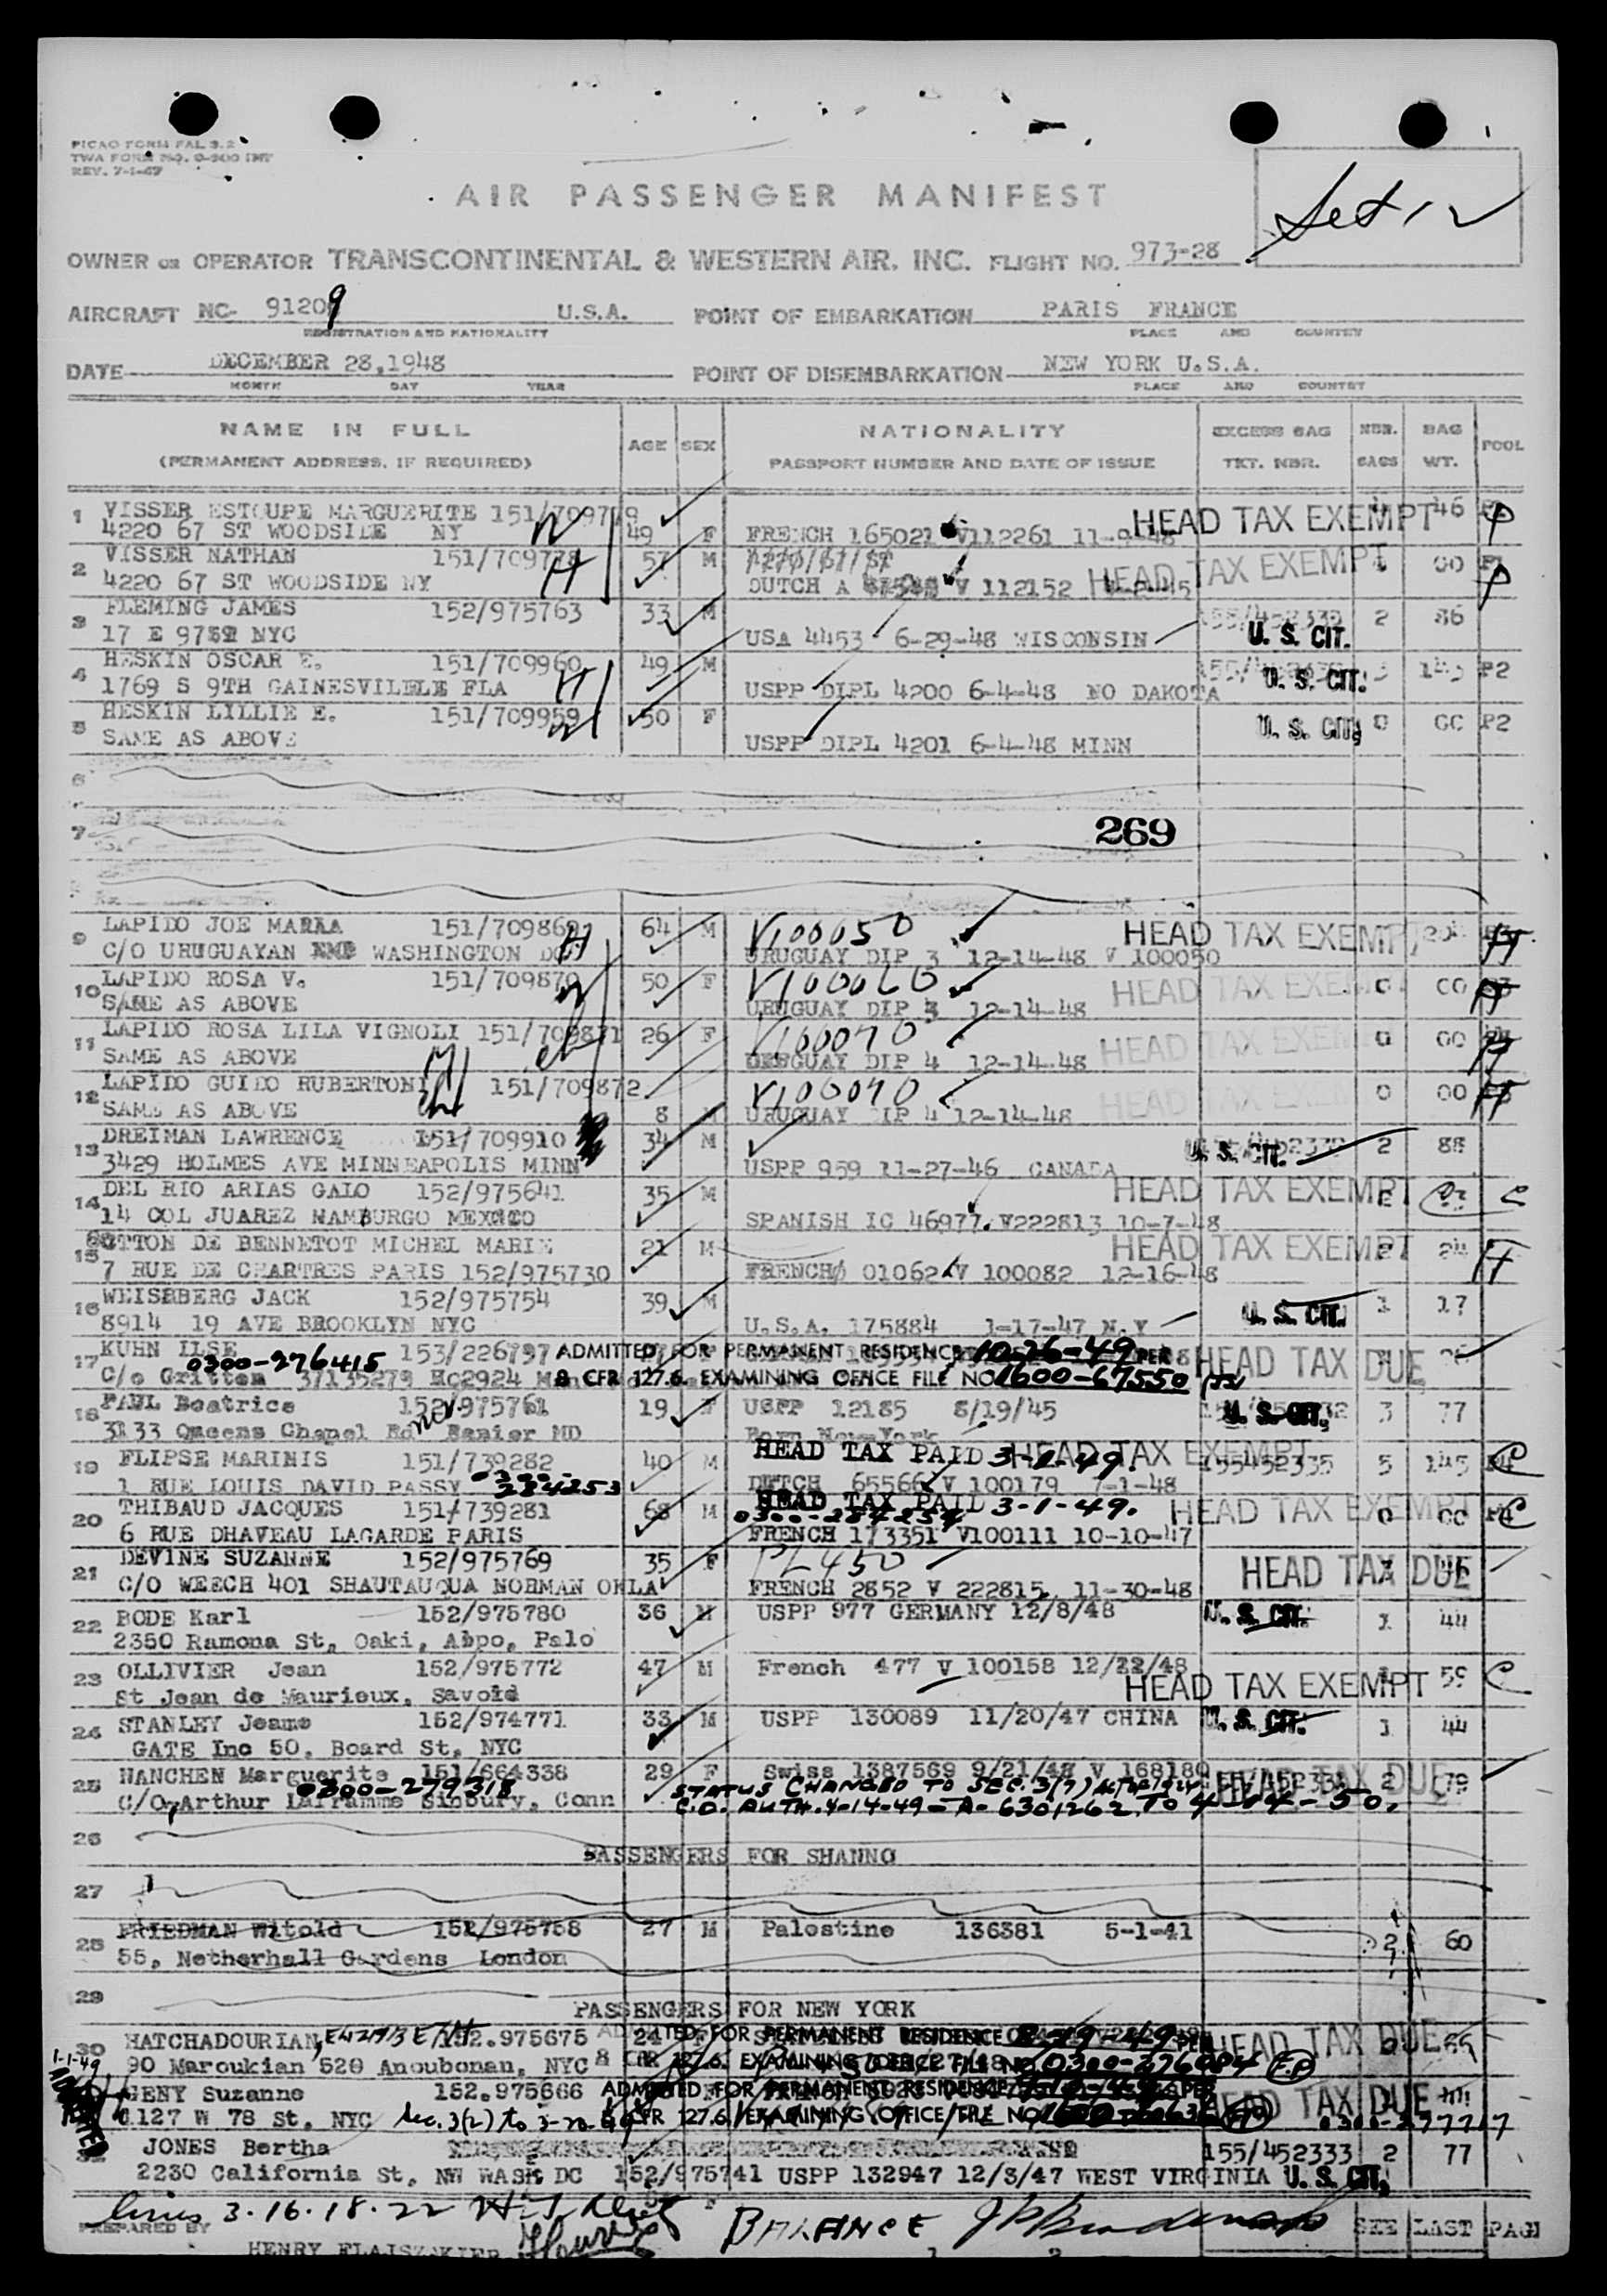 PICAO FORM FAL 3.2
TWA FORM NO. 0-300 INT
REV. 7-1-47
Set 12
AIR PASSENGER MANIFEST
OWNER OR OPERATOR TRANSCONTINENTAL & WESTERN AIR, INC. FLIGHT NO. 973-28
AIRCRAFT NC- 91209 U.S.A. POINT OF EMBARKATION PARIS FRANCE
REGISTRATION AND NATIONALITY PLACE AND COUNTRY
DATE DECEMBER 28,1948 POINT OF DISEMBARKATION NEW YORK U.S.A.
MONTH DAY YEAR PLACE AND COUNTRY
NAME IN FULL AGE SEX NATIONALITY EXCESS BAG NBR. BAG POOL
(PERMANENT ADDRESS, IF REQUIRED) PASSPORT NUMBER AND DATE OF ISSUE TKT. NBR. BAGS WT.
1 VISSER ESTOUPE MARGUERITE 151/709779 HEAD TAX EXEMPT 46
4220 67 ST WOODSIDE NY 49 F FRENCH 165021 V112261
2 VISSER NATHAN 151/709778 57 M HEAD TAX EXEMPT 00
4220 67 ST WOODSIDE NY DUTCH A V 112152
3 FLEMING JAMES 152/975763 33 M 2 86
17 E 97 NYC USA 4453 6-29-48 WISCONSIN U. S. CIT.
4 HESKIN OSCAR E. 151/709960 49 M 3 143 P2
1769 S 9TH GAINESVILELE FLA USPP DIPL 4200 6-4-48 NO DAKOTA U. S. CIT.
5 HESKIN LILLIE E. 151/709959 50 F U. S. CIT. 0 00 P2
SAME AS ABOVE USPP DIPL 4201 6-4-48 MINN
6
7 269
9 LAPIDO JOE MARIA 151/709869 64 M V100050 HEAD TAX EXEMPT
C/O URUGUAYAN EMB WASHINGTON DC URUGUAY DIP 3 12-14-48 V 100050
10 LAPIDO ROSA V. 151/709870 50 F V100060 HEAD TAX EXEMPT 0 00
SAME AS ABOVE URUGUAY DIP 3 12-14-48
11 LAPIDO ROSA LILA VIGNOLI 151/709871 26 F V100070 HEAD TAX EXEMPT 0 00
SAME AS ABOVE URUGUAY DIP 4 12-14-48
12 LAPIDO GUIDO RUBERTONI 151/709872 V100070 HEAD TAX EXEMPT 0 00
SAME AS ABOVE 8 M URUGUAY DIP 4 12-14-48
13 DREIMAN LAWRENCE 151/709910 34 M U. S. CIT. 2 88
3429 HOLMES AVE MINNEAPOLIS MINN USPP 959 11-27-46 CANADA
14 DEL RIO ARIAS GALO 152/975641 35 M HEAD TAX EXEMPT C
14 COL JUAREZ HAMBURGO MEXICO SPANISH IC 46977 V222813 10-7-48
15 OTTON DE BENNETOT MICHEL MARIE 21 M HEAD TAX EXEMPT 24
7 RUE DE CHARTRES PARIS 152/975730 FRENCH 01062 V 100082 12-16-48
16 WEISBERG JACK 152/975754 39 M U. S. CIT. 1 17
8914 19 AVE BROOKLYN NYC U.S.A. 175884 1-17-47 N.Y
17 KUHN ILSE 153/226797 ADMITTED FOR PERMANENT RESIDENCE 10-26-49 PER HEAD TAX DUE
0300-276415
C/o Gritten 8 CFR 127.6. EXAMINING OFFICE FILE NO 1600-67550
18 PAUL Beatrice 152/975761 19 F USPP 12185 8/19/45 U. S. CIT. 3 77
3133 Queens Chapel Rd Ranier MD Born New-York
19 FLIPSE MARINIS 151/739282 40 M HEAD TAX PAID 3-1-49. HEAD TAX EXEMPT 155/452335 5 145
1 RUE LOUIS DAVID PASSY 0300-284253 DUTCH 65566 V 100179 7-1-48
20 THIBAUD JACQUES 151/739281 68 M HEAD TAX PAID 3-1-49. HEAD TAX EXEMPT 0 00 C
0300-284254
6 RUE DHAVEAU LAGARDE PARIS FRENCH 173351 V100111 10-10-47
21 DEVINE SUZANNE 152/975769 35 F PL450 HEAD TAX DUE
C/O WEECH 401 SHAUTAUQUA NORMAN OKLA FRENCH 2852 V 222815 11-30-48
22 BODE Karl 152/975780 36 M USPP 977 GERMANY 12/8/48 U. S. CIT. 1 44
2350 Ramona St, Oaki, Abpo, Palo
23 OLLIVIER Jean 152/975772 47 M French 477 V 100158 12/22/48 HEAD TAX EXEMPT 59 C
St Jean de Maurieux, Savoie
24 STANLEY Jeame 152/974771 33 M USPP 130089 11/20/47 CHINA U. S. CIT. 1 44
GATE Inc 50. Board St, NYC
25 HANCHEN Marguerite 151/664338 29 F Swiss 1387569 9/21/48 V 168180 HEAD TAX DUE 2 79
0300-279318
C/O, Arthur Laframme Simbury, Conn STATUS CHANGED TO SEC. 3(7)
C.O. AUTH. 4-14-49-A-6301262, TO 4-14-50.
26
PASSENGERS FOR SHANNO
27
28 FRIEDMAN Witold 152/975758 27 M Palestine 136381 5-1-41 2 60
55, Netherhall Gardens London
29
PASSENGERS FOR NEW YORK
30 HATCHADOURIAN, 152.975675 24 ADMITTED FOR PERMANENT RESIDENCE 8-19-49 PER HEAD TAX DUE
90 Maroukian 520 Anoubonan, NYC 8 CFR 127.6. EXAMINING OFFICE FILE NO 0300-276084
1-1-49
GENY Suzanne 152.975666 ADMITTED FOR PERMANENT RESIDENCE PER HEAD TAX DUE 44
127 W 78 St, NYC Sec. 3(2) to 3-20-49 CFR 127.6. EXAMINING OFFICE FILE NO 0300-277717
32 JONES Bertha 155/452333 2 77
2230 California St, NW WASH DC 152/975741 USPP 132947 12/3/47 WEST VIRGINIA U. S. CIT.
lines 3-16-18-22
PREPARED BY BALANCE SEE LAST PAGE
HENRY FLAJSZAKIER